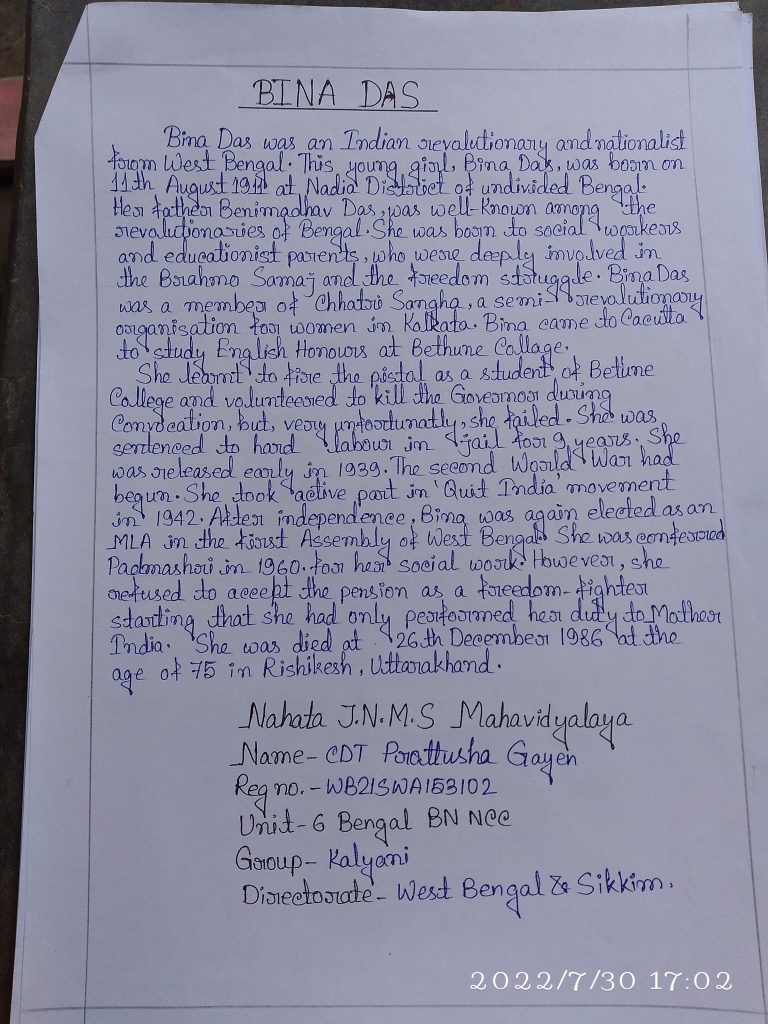 BINA DAS
Bina Das was an Indian revalutionary and nationalist
from West Bengal. This young girl, Bina Das, was born on
11th August 1911 at Nadia District of undivided Bengal.
Her father Benimadhav Das, was well-known among the
revalutionaries of Bengal. She was born to social workers
and educationist parents, who were deeply involved in
the Brahmo Samaj and the freedom struggle. Bina Das
was a member of Chhatri Sangha, a semi-revalutionary
organisation for women in Kolkata. Bina came to Cacutta
to study English Honours at Bethune Callage.
She learnt to fire the pistal as a student of Betune
College and volunteered to kill the Governor during
Convocation, but, very unfortunatly, she failed. She was
sentenced to hard labour in jail for 9 years. She
was released early in 1939. The second World War had
begun. She took active part in 'Quit India' movement
in 1942. After independence, Bina was again elected as an
MLA in the first Assembly of West Bengal. She was conferred
Padmashri in 1960. for her social work. However, she
refused to accept the pension as a freedom-fighter
starting that she had only performed her duty to Mother
India. She was died at 26th December 1986 at the
age of 75 in Rishikesh, Uttarakhand.
Nahata J.N.M.S Mahavidyalaya
Name- CDT Prattusha Gayen
Reg no.- WB21SWA153102
Unit- 6 Bengal BN NCC
Group- Kalyani
Directorate- West Bengal & Sikkim.
2022/7/30 17:02